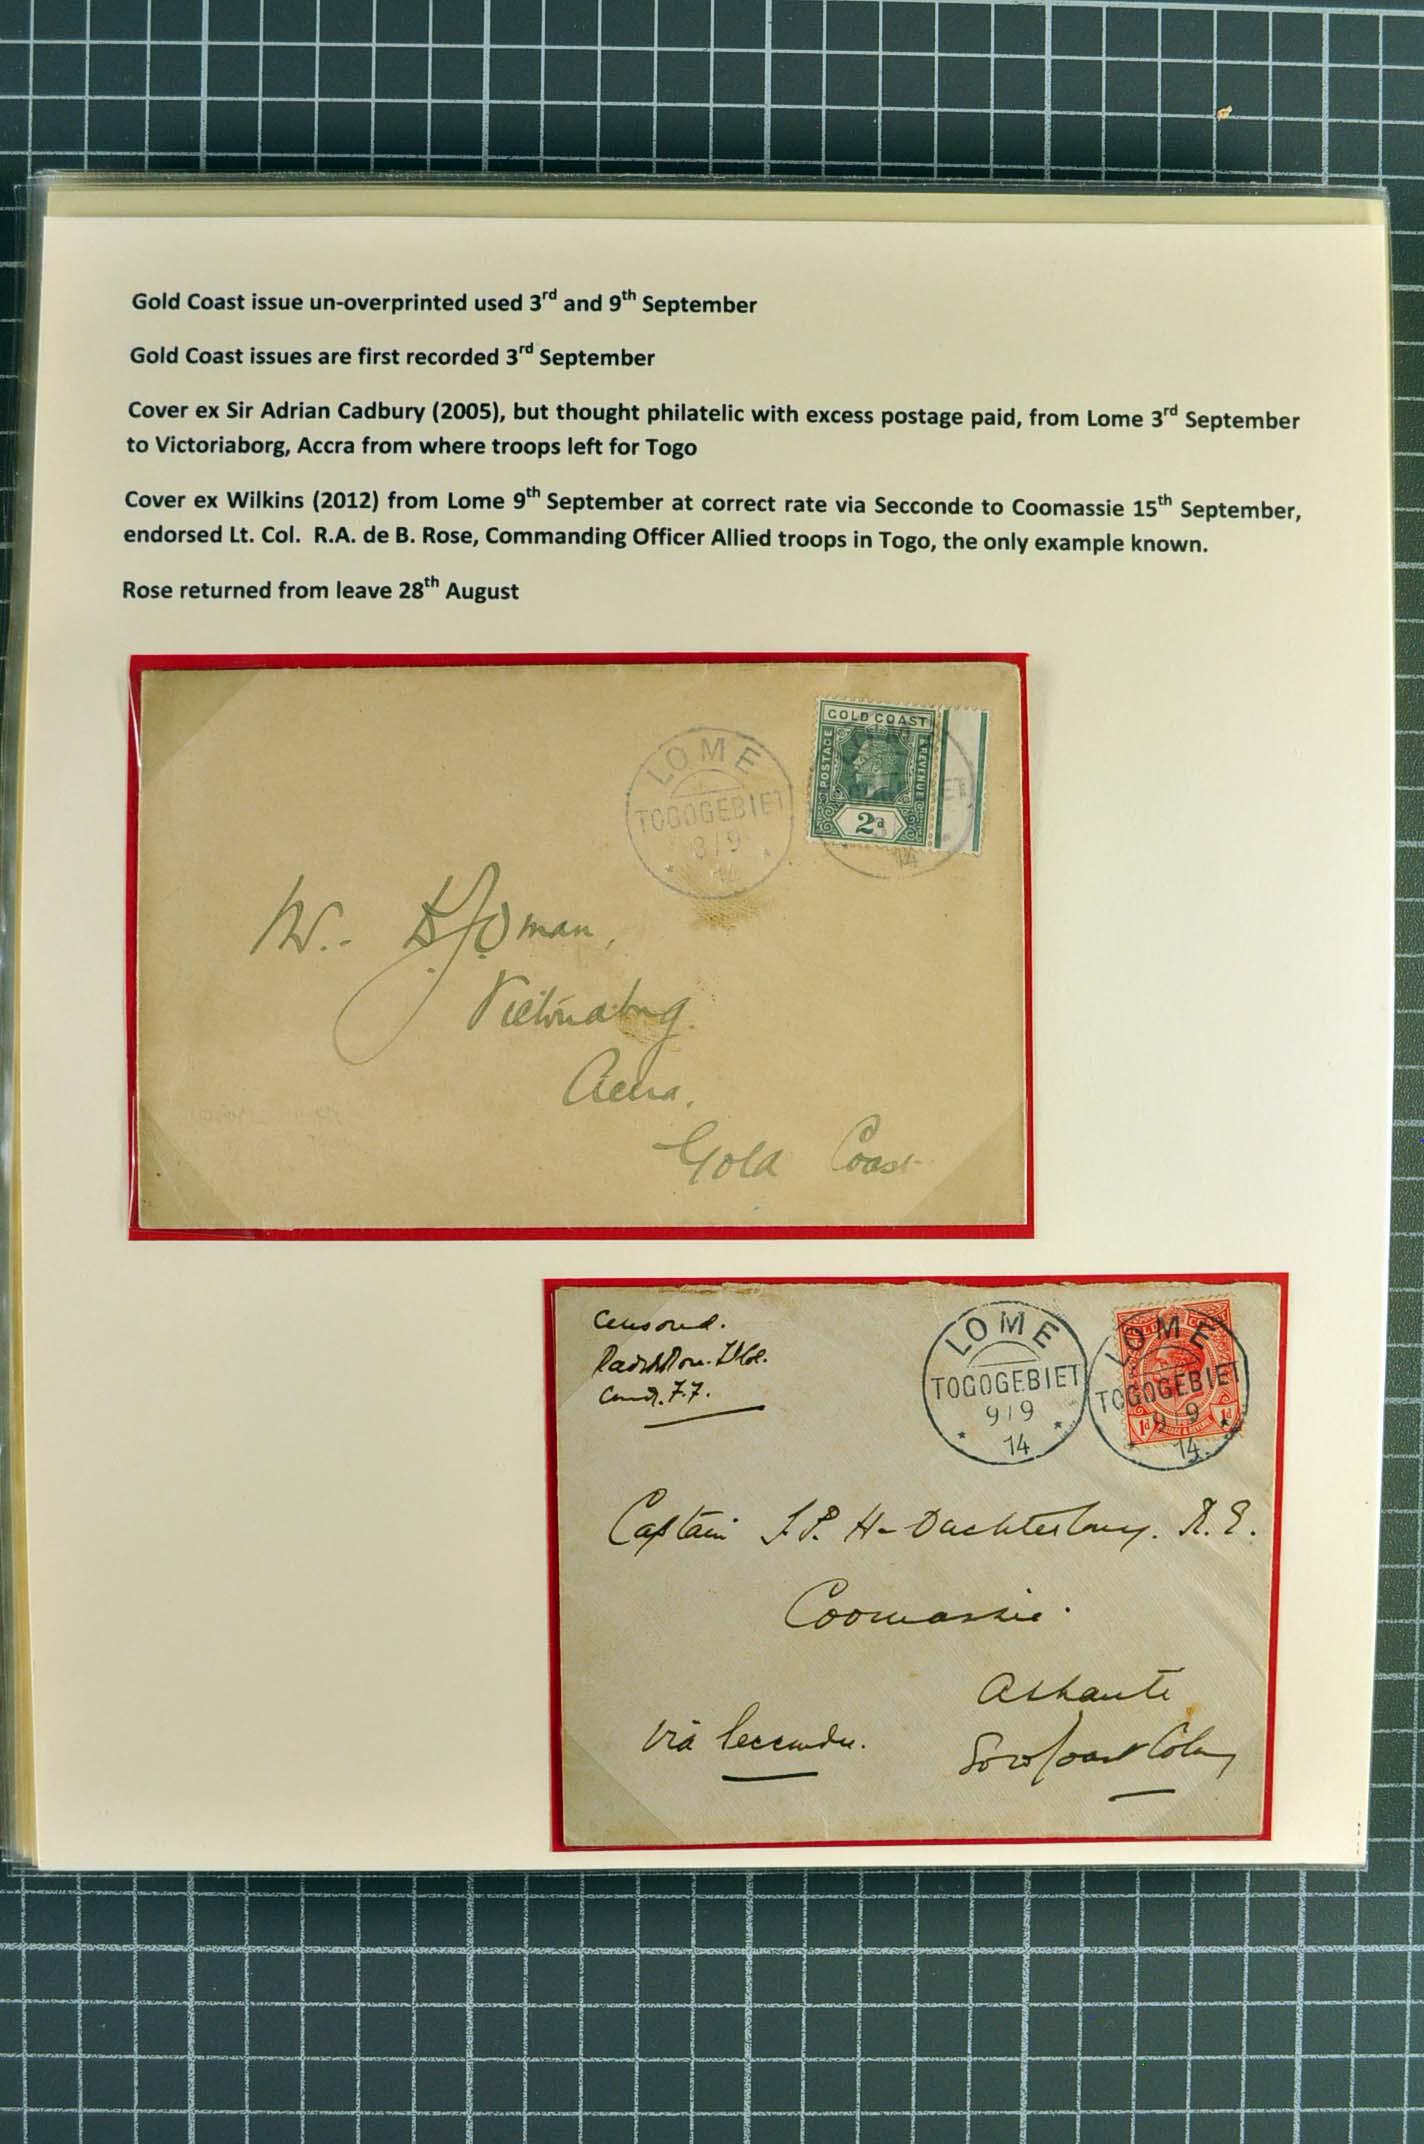 Gold Coast issue un-overprinted used 3rd and 9th September
Gold Coast issues are first recorded 3rd September
Cover ex Sir Adrian Cadbury (2005), but thought philatelic with excess postage paid, from Lome 3rd September
to Victoriaborg, Accra from where troops left for Togo
Cover ex Wilkins (2012) from Lome 9th September at correct rate via Secconde to Coomassie 15th September,
endorsed Lt. Col. R.A. de B. Rose, Commanding Officer Allied troops in Togo, the only example known.
Rose returned from leave 28th August
LOME
TOGOGEBIET
3/9
14
GOLD COAST
POSTAGE
& REVENUE
2d
14
Oman,
Victoriaborg.
Accra.
Gold Coast
Censored.
LOME
TOGOGEBIET
9/9
14
LOME
TOGOGEBIET
9/9
14
1d
1d
Captain
R.E.
Coomassie.
Ashanti
via Seccondee.
Gold Coast Colony